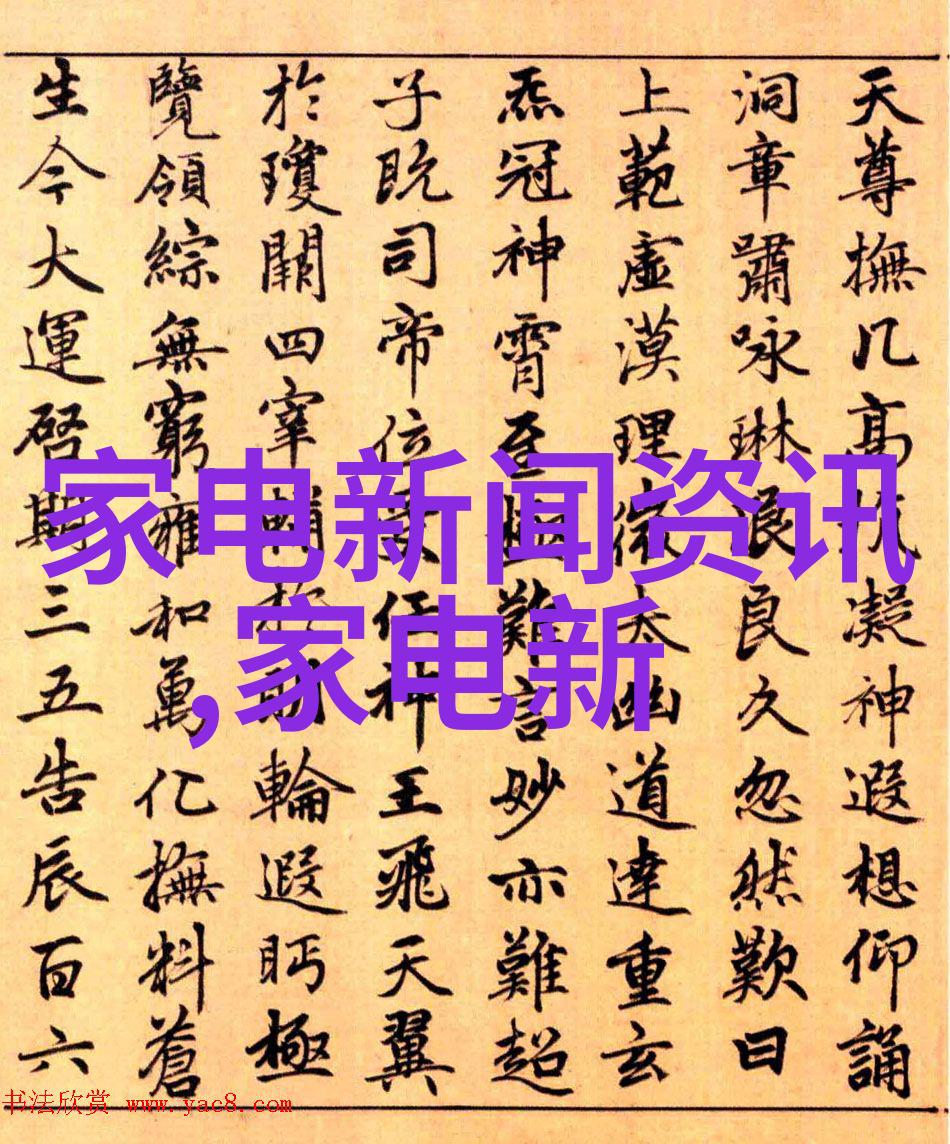 天尊撫几高抗凝神遐想仰誦
洞章嘯咏琳琅良久忽然歎曰
上範虛漠理微太幽道達重玄
炁冠神霄至極難言妙亦難超
子既司帝位 任神王飛天翼
於瓊闕四宰輔 輪遐眄極
覽領綜無窮雍和萬化撫料蒼
生今大運啓期三五告辰百六
家电新闻资讯
,家电新
书法欣赏 www.yac8.com